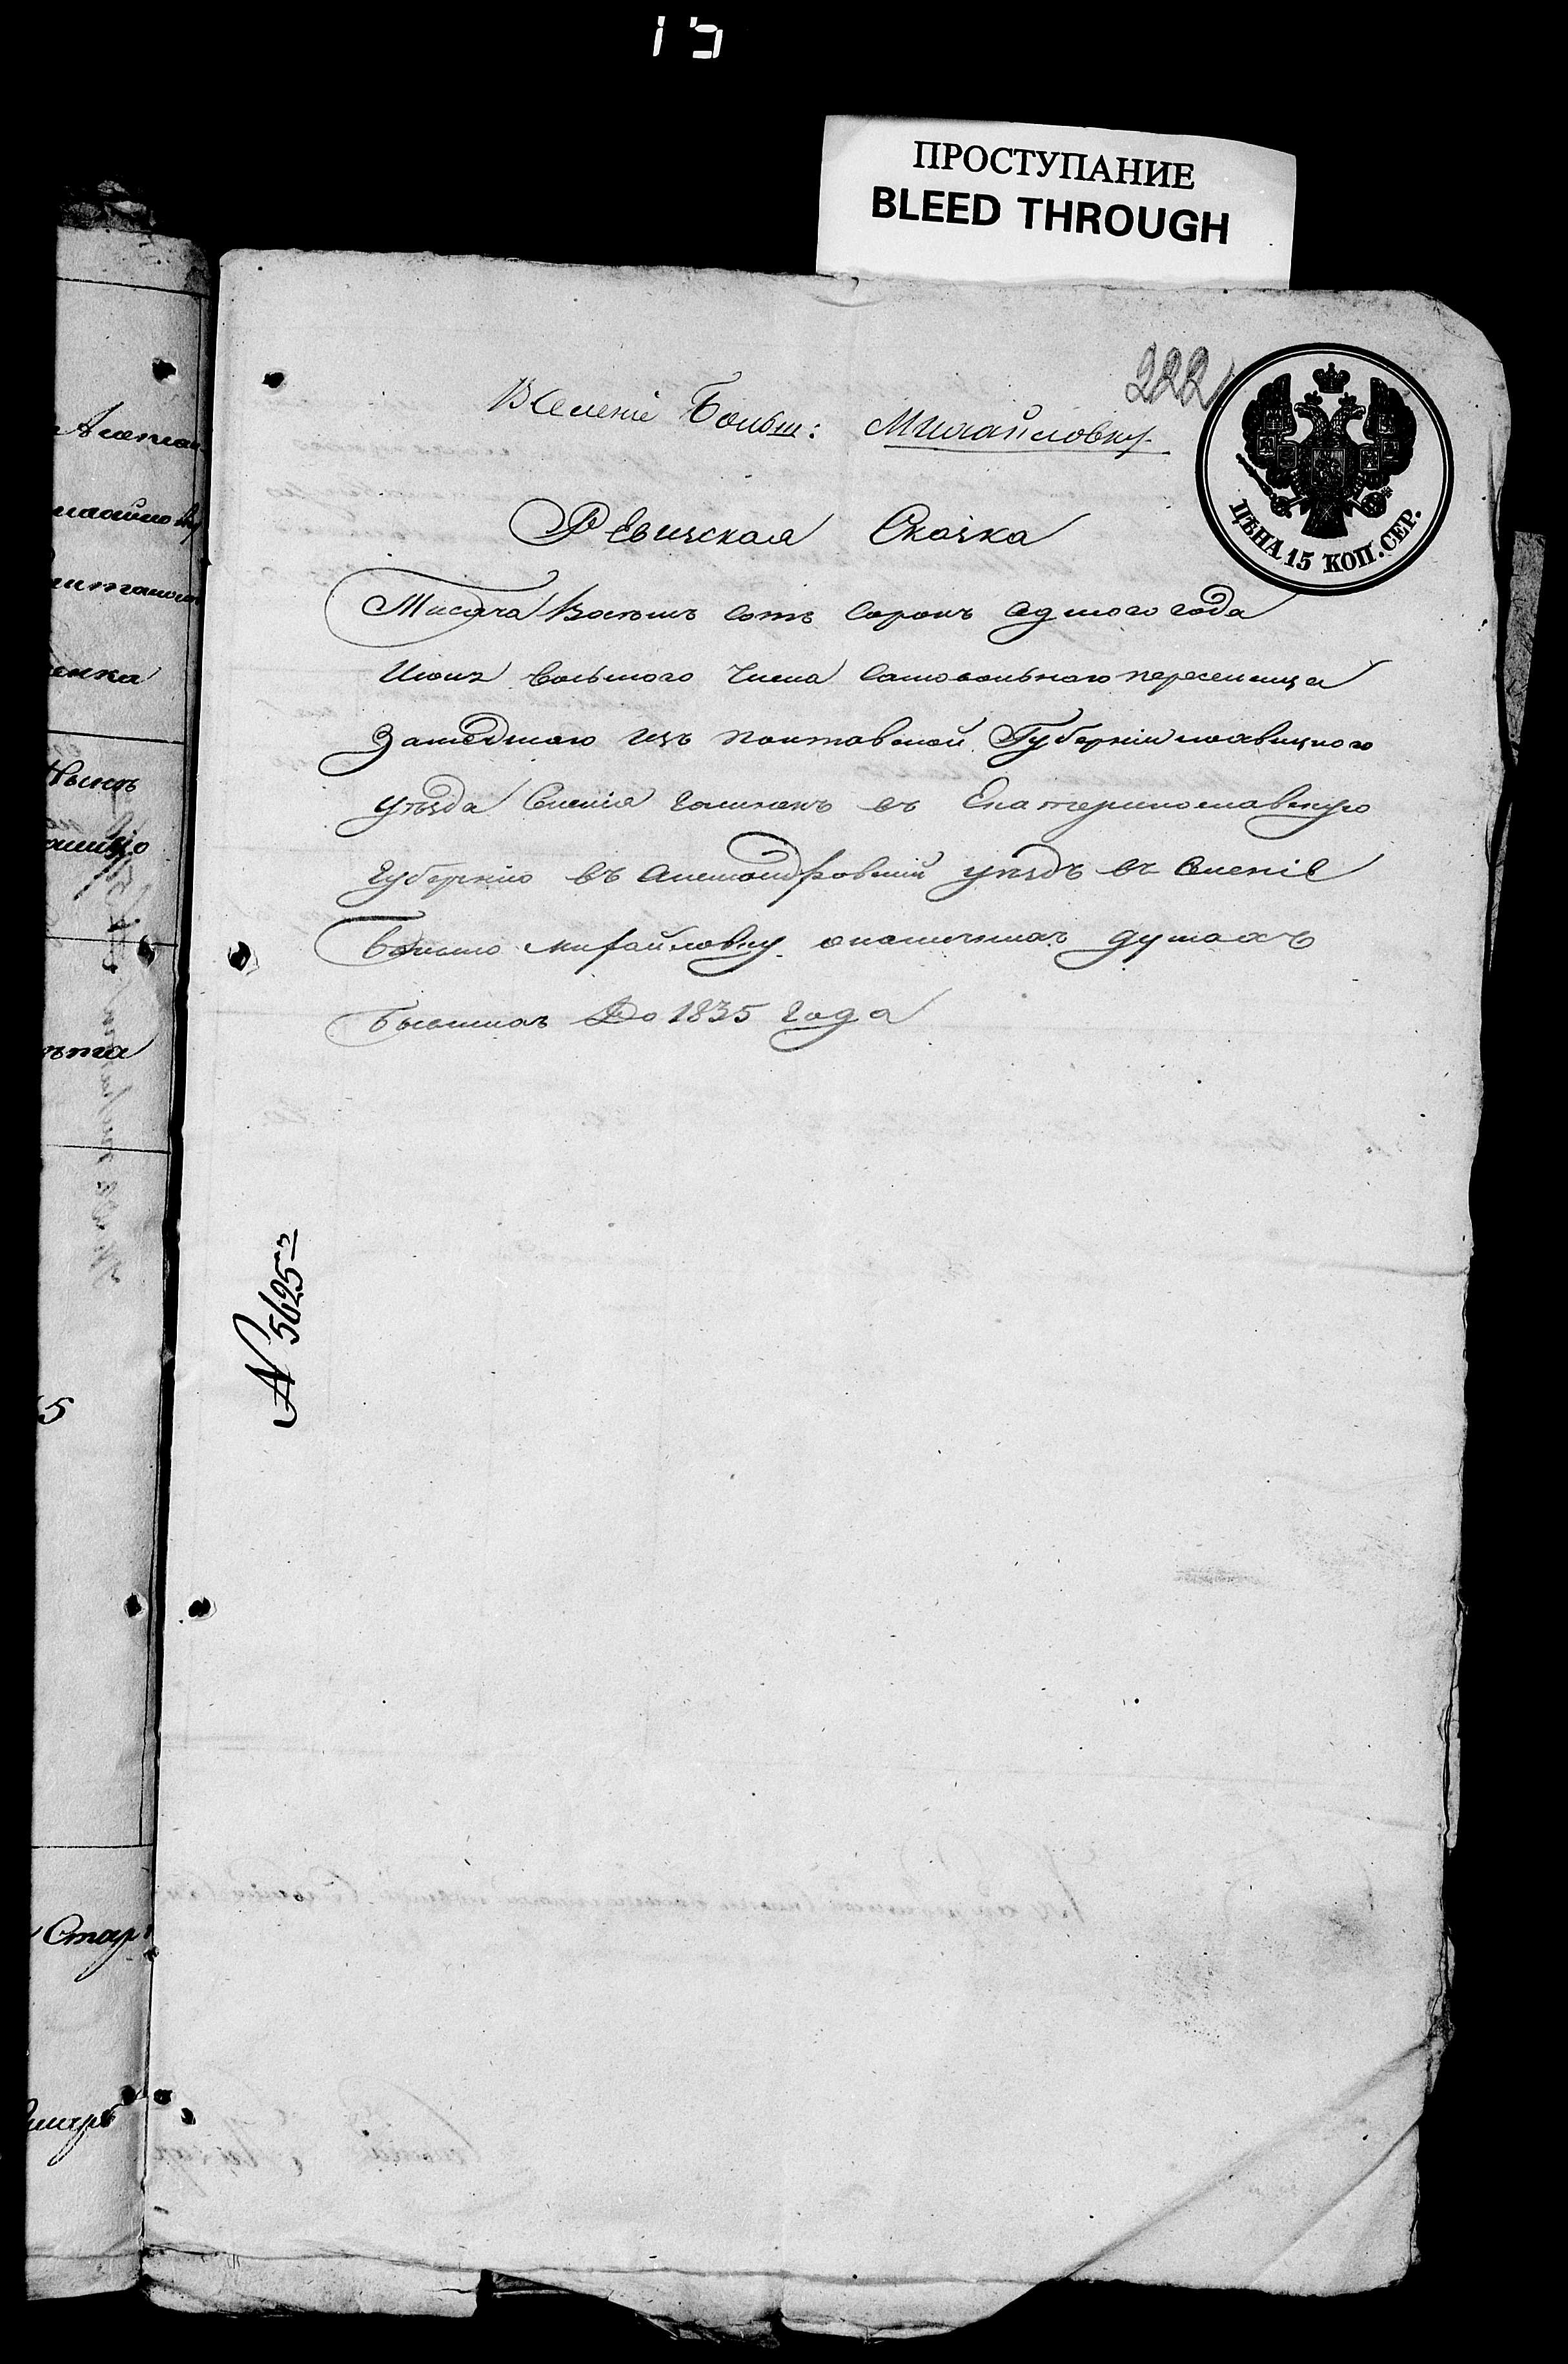 15
ПРОСТУПАНИЕ
BLEED THROUGH
222
В Селеніе Больш: Михайловку
ЦѢНА 15 КОП. СЕР.
Ревизская Сказка
Тисяча Восемь сотъ сорокъ седмого года
Июня восьмого числа самовольнаго переселенца
Зашедшаго изъ Полтавской Губерніи
уѣзда Селенія въ Екатеринославскую
Губернію въ Александровский уѣздъ въ Селеніе
Большо михайловку о наличныхъ душахъ
бывшихъ До 1835 года
N 5625
енка
5
Стар